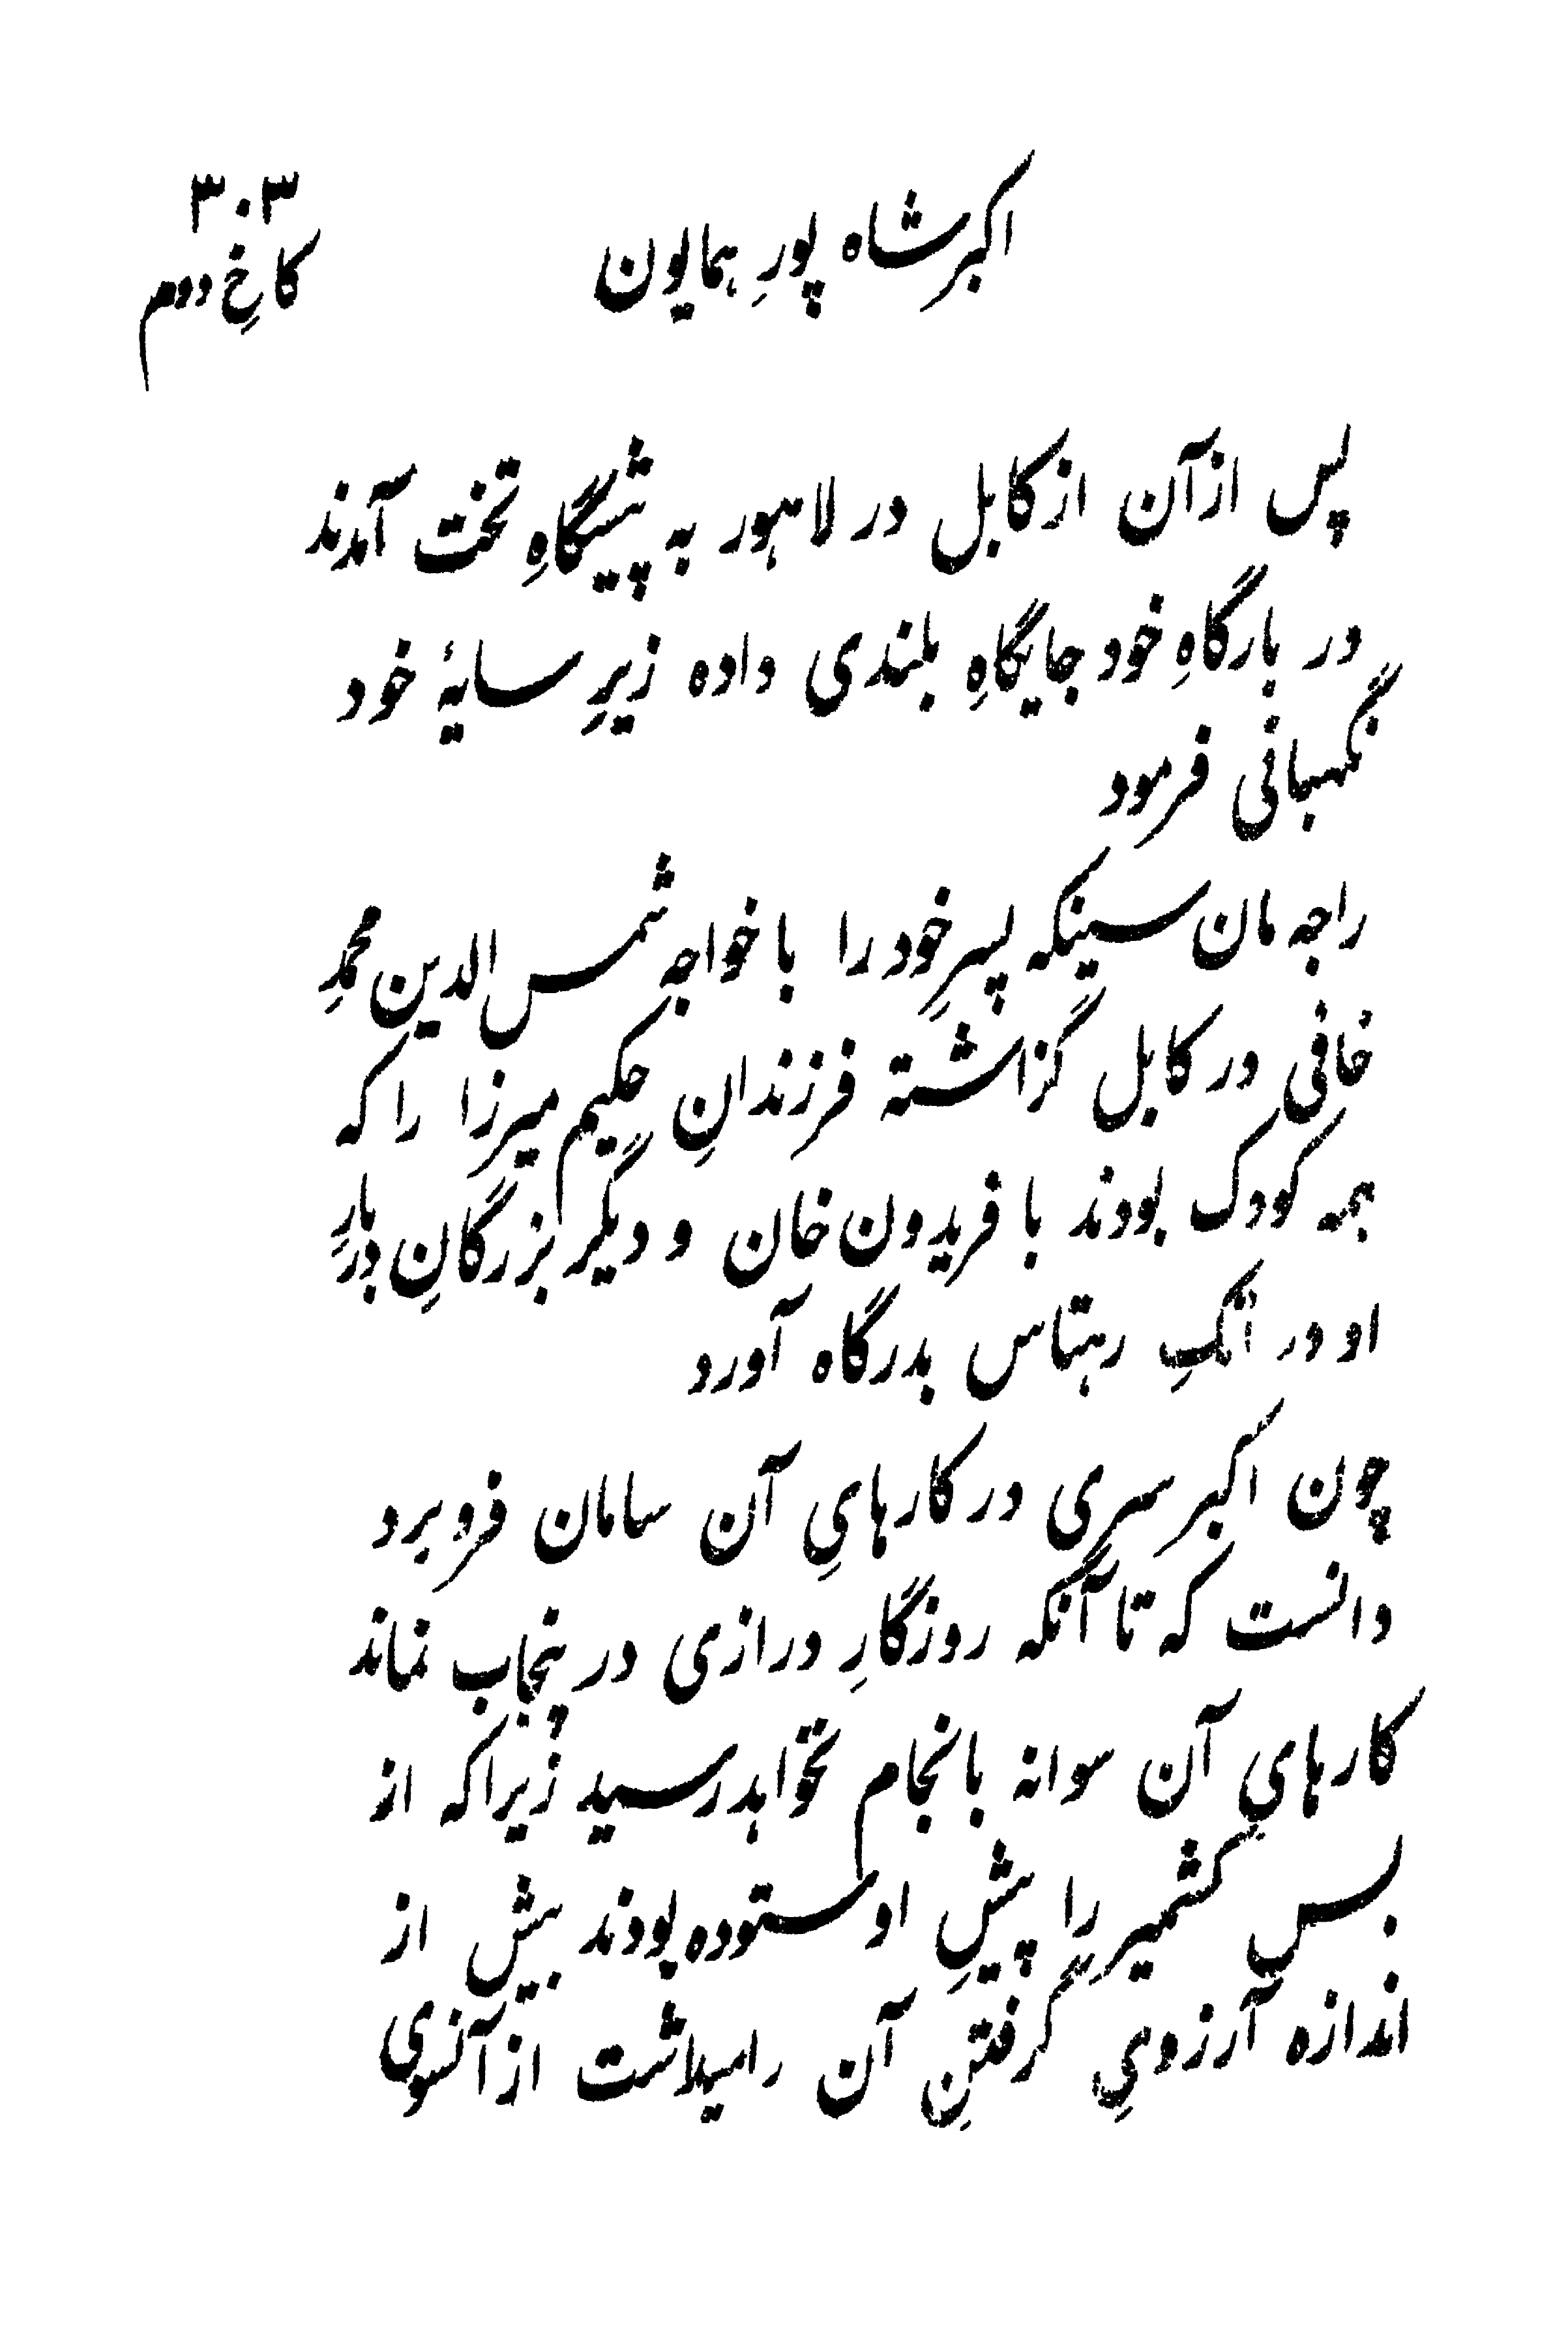 اکبر شاه پورِ همایون
۳۰۳
کاخِ دوم
پس از آن از کابل در لاهور به پیشگاهِ تخت آمدند
در بارگاهِ خود جایگاهِ بلندی داده زیرِ سایهٔ خود
نگهبانی فرمود
راجه مان سینکه پسرِ خود را با خواجه شمس الدین محمدِ
خافی در کابل گزاشته فرزندانِ حکیم میرزا را که
همه کودک بودند با فریدون خان و دیگر بزرگانِ دربارِ
او در اتکِ رهتاس بدرگاه آورد
چون اکبر سری در کارهایِ آن سامان فرو برد
دانست که تا آنکه روزگارِ درازی در پنجاب نماند
کارهایِ آن سوانه بانجام نخواهد رسید زیرا که از
بس کشمیر را پیشِ او ستوده بودند بیش از
اندازه آرزویِ گرفتنِ آن را میداشت از آنسوی